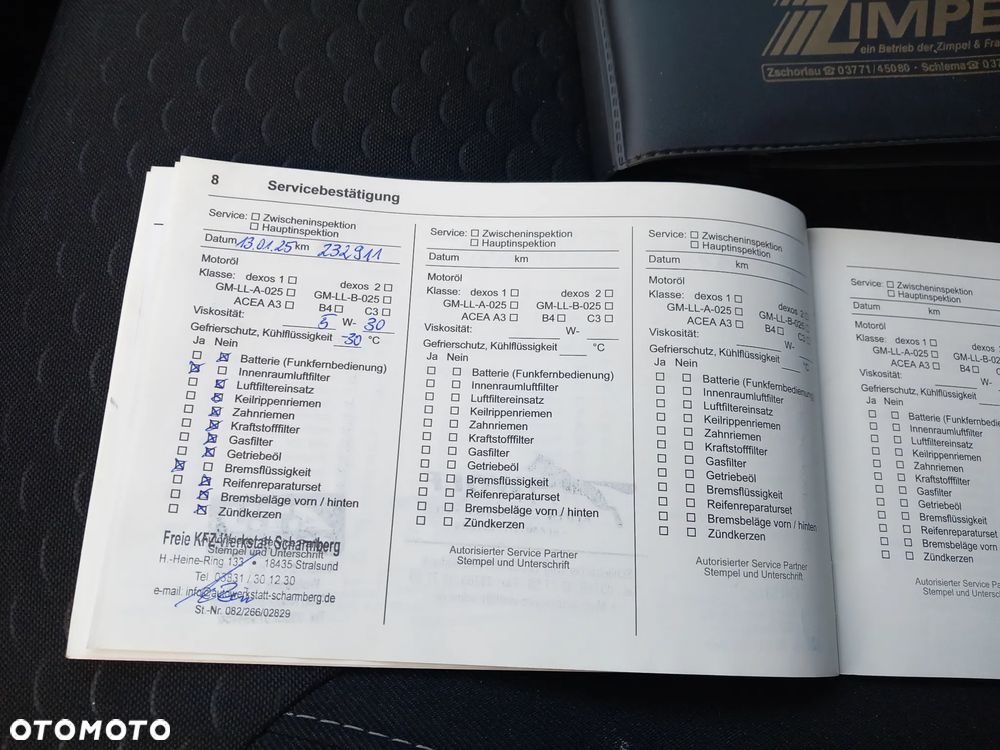 ZIMPE
ein Betrieb der Zimpel & Fra
Zschorlau ☎ 03771/45080 · Schlema ☎ 037
8
Servicebestätigung
Service: ☐ Zwischeninspektion
☐ Hauptinspektion
Datum 13.01.25 km 232911
Motoröl
Klasse: dexos 1 ☐ dexos 2 ☐
GM-LL-A-025 ☐ GM-LL-B-025 ☐
ACEA A3 ☐ B4 ☐ C3 ☐
Viskosität: 5 W- 30
Gefrierschutz, Kühlflüssigkeit -30 °C
Ja Nein
☐ ☒ Batterie (Funkfernbedienung)
☒ ☐ Innenraumluftfilter
☐ ☒ Luftfiltereinsatz
☐ ☒ Keilrippenriemen
☐ ☒ Zahnriemen
☐ ☒ Kraftstofffilter
☐ ☒ Gasfilter
☐ ☒ Getriebeöl
☒ ☐ Bremsflüssigkeit
☐ ☒ Reifenreparaturset
☐ ☒ Bremsbeläge vorn / hinten
☐ ☒ Zündkerzen
Freie KFZ-Werkstatt Scharmberg
Stempel und Unterschrift
H.-Heine-Ring 133 • 18435 Stralsund
Tel. 03831 / 30 12 30
e-mail: info@autowerkstatt-scharmberg.de
St.-Nr. 082/266/02829
Service: ☐ Zwischeninspektion
☐ Hauptinspektion
Datum km
Motoröl
Klasse: dexos 1 ☐ dexos 2 ☐
GM-LL-A-025 ☐ GM-LL-B-025 ☐
ACEA A3 ☐ B4 ☐ C3 ☐
Viskosität: W-
Gefrierschutz, Kühlflüssigkeit °C
Ja Nein
☐ ☐ Batterie (Funkfernbedienung)
☐ ☐ Innenraumluftfilter
☐ ☐ Luftfiltereinsatz
☐ ☐ Keilrippenriemen
☐ ☐ Zahnriemen
☐ ☐ Kraftstofffilter
☐ ☐ Gasfilter
☐ ☐ Getriebeöl
☐ ☐ Bremsflüssigkeit
☐ ☐ Reifenreparaturset
☐ ☐ Bremsbeläge vorn / hinten
☐ ☐ Zündkerzen
Autorisierter Service Partner
Stempel und Unterschrift
Service: ☐ Zwischeninspektion
☐ Hauptinspektion
Datum km
Motoröl
Klasse: dexos 1 ☐ dexos 2 ☐
GM-LL-A-025 ☐ GM-LL-B-025
ACEA A3 ☐ B4 ☐ C3
Viskosität: W-
Gefrierschutz, Kühlflüssigkeit °C
Ja Nein
☐ ☐ Batterie (Funkfernbedienung)
☐ ☐ Innenraumluftfilter
☐ ☐ Luftfiltereinsatz
☐ ☐ Keilrippenriemen
☐ ☐ Zahnriemen
☐ ☐ Kraftstofffilter
☐ ☐ Gasfilter
☐ ☐ Getriebeöl
☐ ☐ Bremsflüssigkeit
☐ ☐ Reifenreparaturset
☐ ☐ Bremsbeläge vorn / hinten
☐ ☐ Zündkerzen
Autorisierter Service Partner
Stempel und Unterschrift
Service: ☐ Zwischeninspektion
☐ Hauptinspektion
Datum km
Motoröl
Klasse: dexos 1 ☐ dexo
GM-LL-A-025 ☐ GM-LL-B
ACEA A3 ☐ B4 ☐
Viskosität: W-
Gefrierschutz, Kühlflüssigkeit
Ja Nein
☐ ☐ Batterie (Funkfernbedie
☐ ☐ Innenraumluftfilter
☐ ☐ Luftfiltereinsatz
☐ ☐ Keilrippenriemen
☐ ☐ Zahnriemen
☐ ☐ Kraftstofffilter
☐ ☐ Gasfilter
☐ ☐ Getriebeöl
☐ ☐ Bremsflüssigkeit
☐ ☐ Reifenreparaturset
☐ ☐ Bremsbeläge vorn
☐ ☐ Zündkerzen
Autorisierter Service Pa
Stempel und Untersch
OTOMOTO